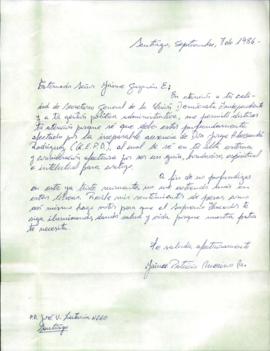 Santiago, Septiembre, 7 de 1986.-
Estimado Señor Jaime Guzmán E.;
En atención a tu cali-
dad de Secretario General de la Unión Demócrata Independiente
y a tu gestión política administrativa, me permito distraer
tu atención porque sé que debes estar profundamente
afectado por la irreparable ausencia de Don Jorge Alessandri
Rodríguez (Q.E.P.D.), al cual de sé en la alta estima
y consideración afectuosa por ser un guía, espiritual
e intelectual para
A fin de no profundizar
en este ya triste momento, no me extiendo más en
estas líneas. Recibe mis sentimientos de pesar
mí mismo hago votos para que el Supremo
siga iluminando dando salud y vida porque nuestra patria
te necesita
Te saluda afectuosamente
Jaime Patricio Moreno
Santiago